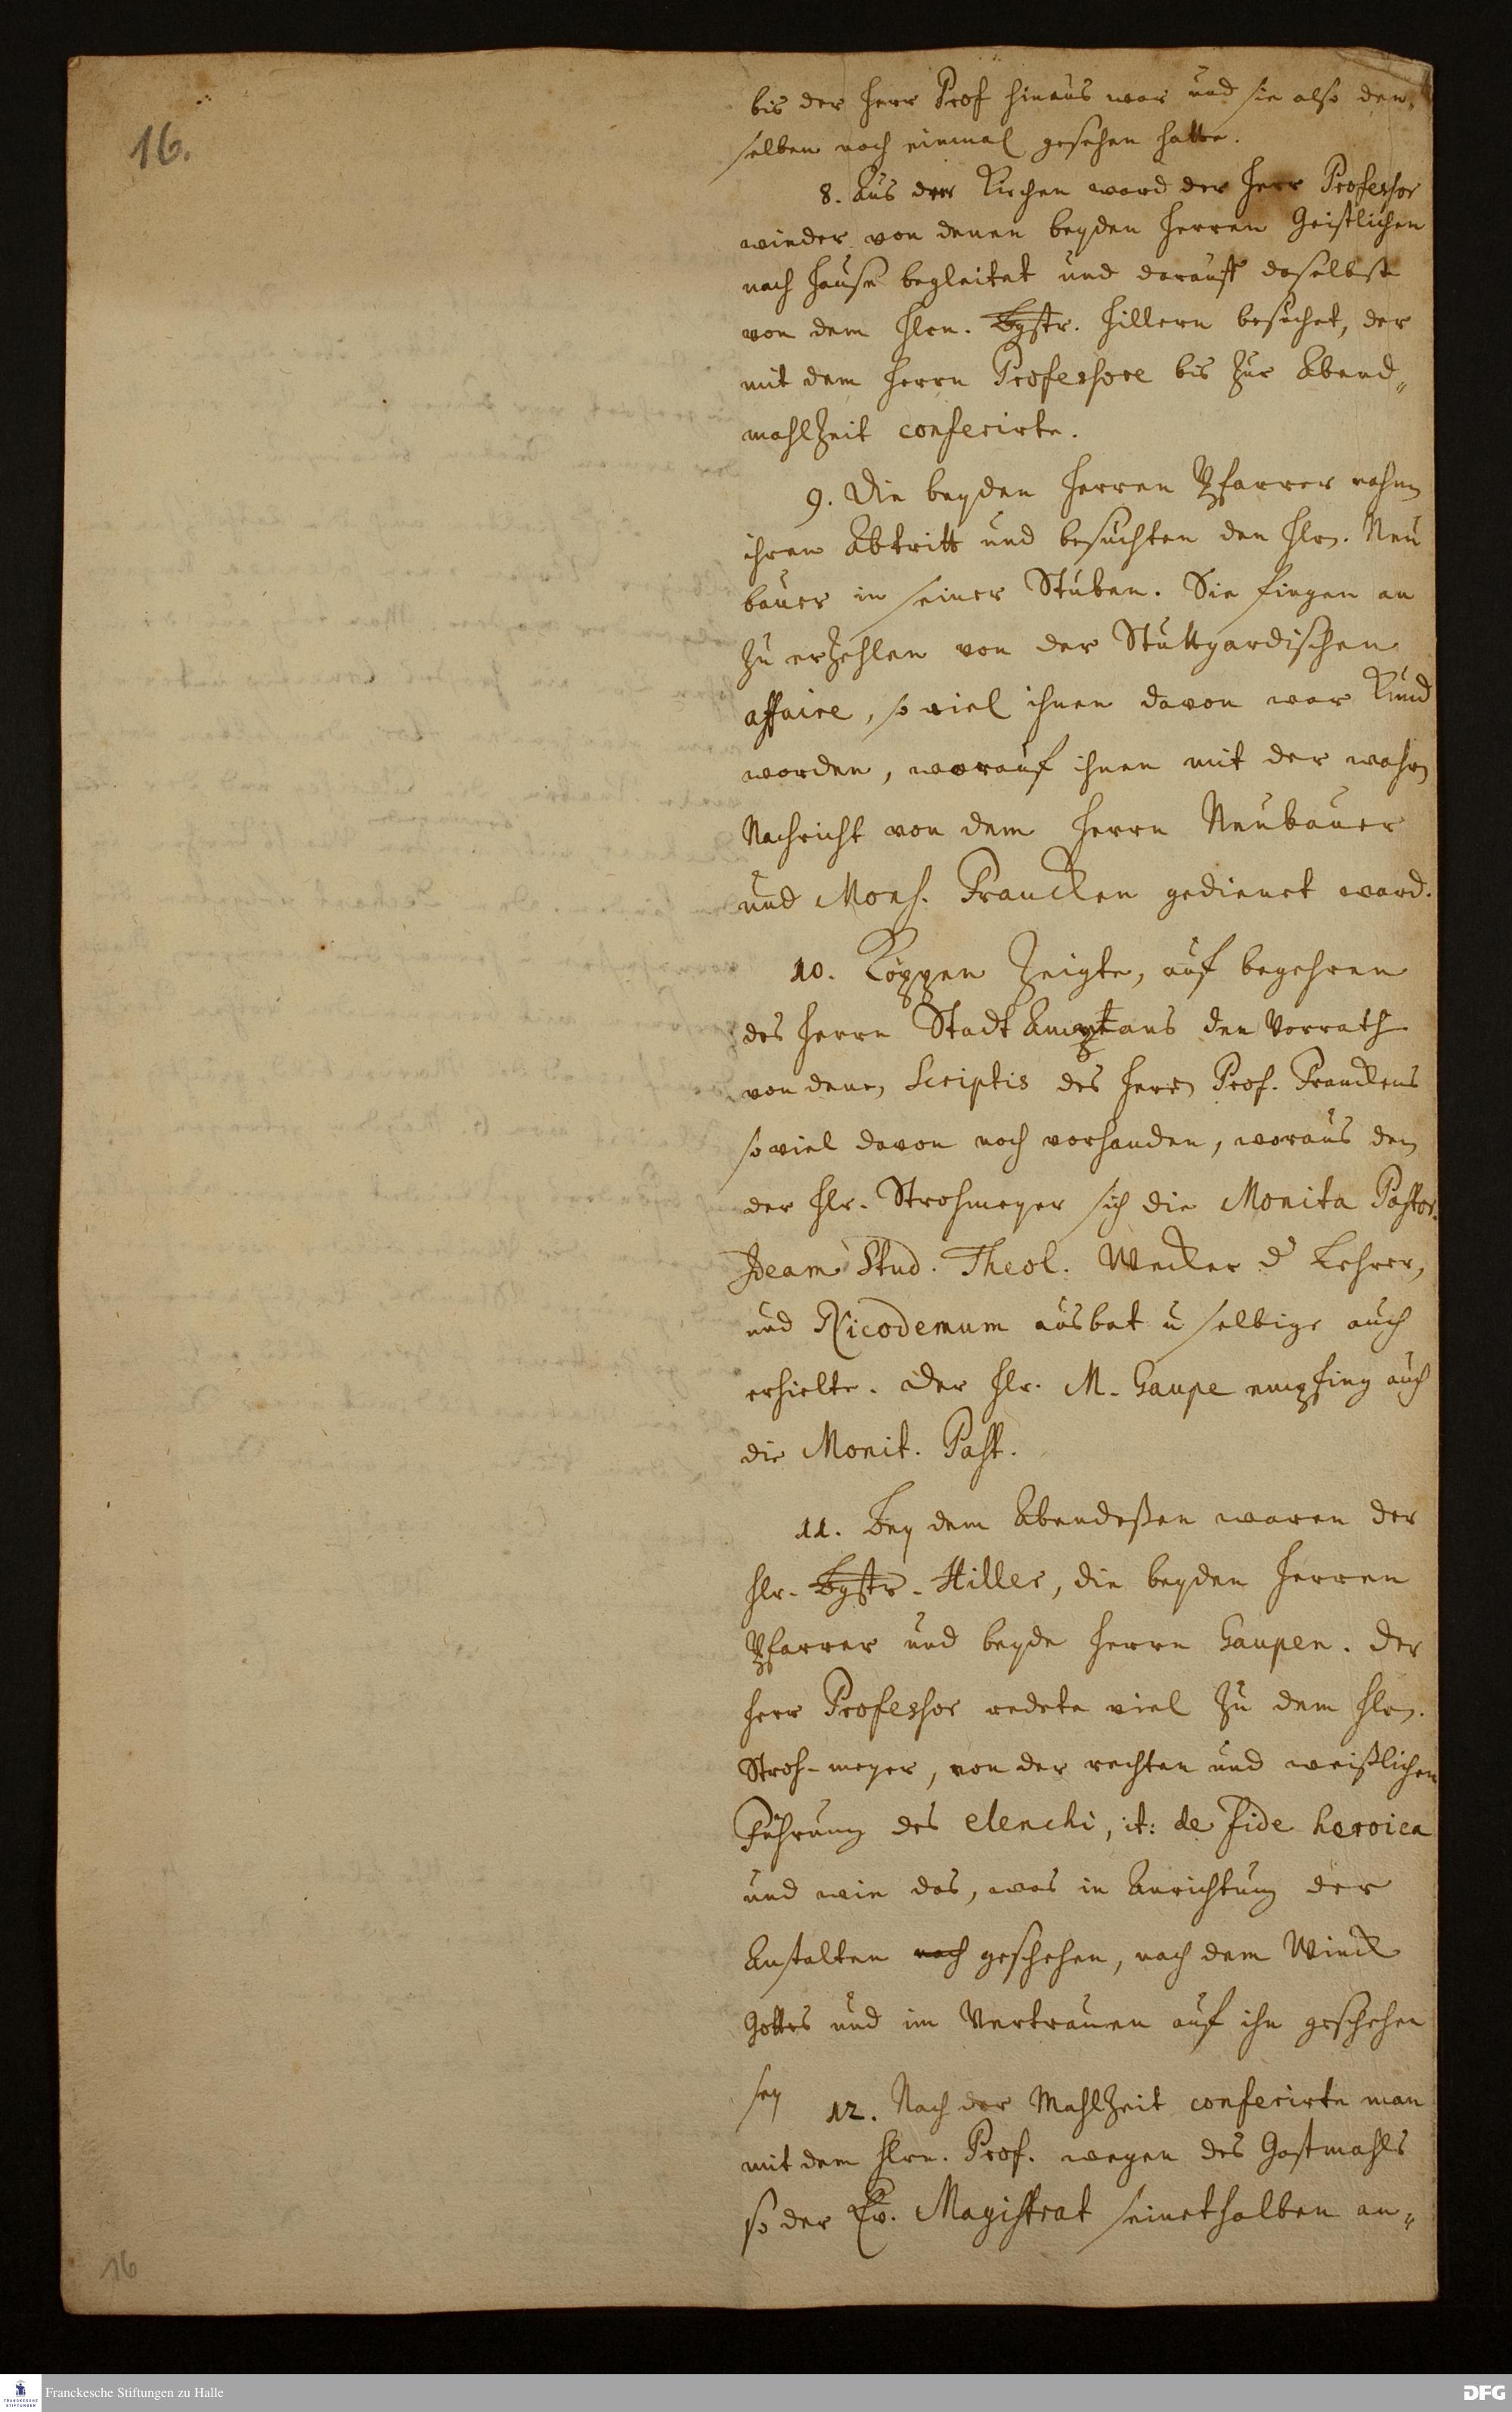 16.
bis der Herr Prof hinaus war und sie also den„
selben noch einmal gesehen hatte.
8. Aus der Kirchen ward der Herr Professor
wieder von denen beyden Herren Geistlichen
nach Hause begleitet und darauff daselbst
von dem Hlrn. Bgstr. Hillern besuchet, der
mit dem Herrn Professore bis zur Abend„
mahlzeit conferirte.
9. Die beyden Herren Pfarrer nahm
ihren Abtritt und besuchten den Hlrn. Neu
bauer in seiner Stuben. Sie fingen an
zu erzehlen von der Stuttgardischen
affaire, so viel ihnen davon war kund
worden, worauf ihnen mit der wahrn
Nachricht von dem Herrn Neubauer
und Mons. Francken gedienet ward.
10. Köppen zeigte, auf begehren
des Herrn Stadt Amptmans den Vorrath
von denen Scriptis des Herrn Prof. Franckens
so viel davon noch vorhanden, woraus den
der Hlr. Strohmeyer sich die Monita Pastor.
Ideam Stud. Theol. Wecker d Lehrer,
und Nicodemum ausbat u selbige auch
erhielte. Der Hlr. M. Gaupe empfing auch
die Monit. Past.
11. Bey dem Abendeßen waren der
Hlr. Bgstr. Hiller, die beyden Herren
Pfarrer und beyde Herrn Gaupen. Der
Herr Professor redete viel zu dem Hlrn.
Stroh-meyer, von der rechten und weißlichen
Führung des elenchi, it: de fide heroica
und wie das, was in Anrichtung der
Anstalten noch geschehen, nach dem Winck
Gottes und im Vertrauen auf ihn geschehen
sey
12. Nach der Mahlzeit conferirte man
mit dem Hlrn. Prof. wegen des Gastmahls
so der Ev. Magistrat seinethalben an„
16
Franckesche Stiftungen zu Halle
DFG